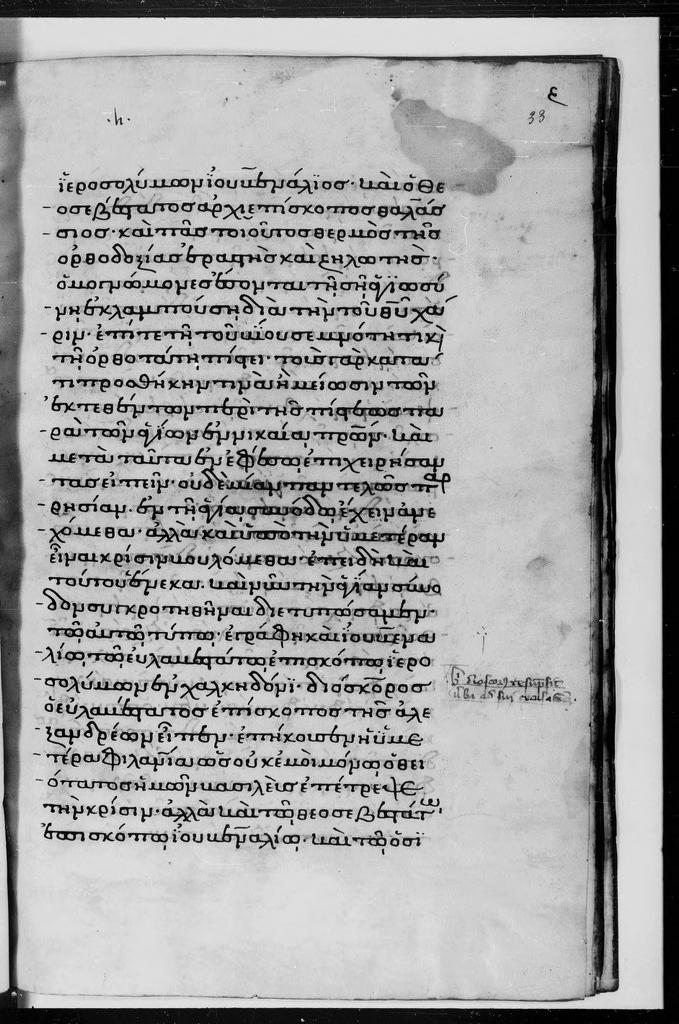 ε
33
·η·
ἱεροσολύμων ἰουβενάλιος· καὶ ὁ θε
οσεβέστατος ἀρχιεπίσκοπος θαλάσ
σιος· καὶ πᾶς τοιοῦτος θερμὸς τῆς
ὀρθοδοξίας ἐραστὴς καὶ ζηλωτής·
ὁμογνώμονες ἔσονται τῇ ἁγίᾳ συ
ἐκλαμπούσῃ διὰ τὴν τοῦ θυ χά
ριν· ἐπί τε τῇ τοῦ βίου σεμνότητι κὶ
τῇ ὀρθοτάτῃ πίστει· τοὺς γὰρ κατα
τι προσθήκην τινὰ ἢ μείωσιν τῶν
ἐκτεθέντων περὶ τῆς πίστεως πα
ρὰ τῶν ἁγίων ἐν νικαίᾳ πρῶν· καὶ
μετὰ ταῦτα ἐν ἐφέσῳ ἐπιχειρήσαν
τας εἰπεῖν· οὐδεμίαν παντελῶς παρ
ρησίαν· ἐν τῇ ἁγίᾳ συνόδῳ ἔχειν ἀνε
χόμεθα· ἀλλὰ καὶ ὑπὸ τὴν ὑμετέραν
εἶναι κρίσιν βουλόμεθα· ἐπειδὴ καὶ
τούτου ἕνεκα. καὶ νῦν τὴν ἁγίαν σύνο
δον συγκροτηθῆναι διετυπώσαμεν·
τῷ αὐτῷ τύπῳ· ἐγράφη καὶ ἰουβενα
λίῳ τῷ εὐλαβεστάτῳ ἐπισκόπῳ ἱερο
σολύμων ἐν χαλκηδόνι· διόσκορος
ὁ εὐλαβέστατος ἐπίσκοπος τῆς ἀλε
ξανδρέων εἶπεν· ἐπήκουσεν ἡ ὑμε
τέρα φιλανία ὡς οὐκ ἐμοὶ μόνῳ ὁ θει
ότατος ἡμῶν βασιλεὺς ἐπέτρεψε
τὴν κρίσιν· ἀλλὰ καὶ τῷ θεοσεβεστάτω
ἐπισκόπῳ ἰουβεναλίῳ· καὶ τῷ ὁσι